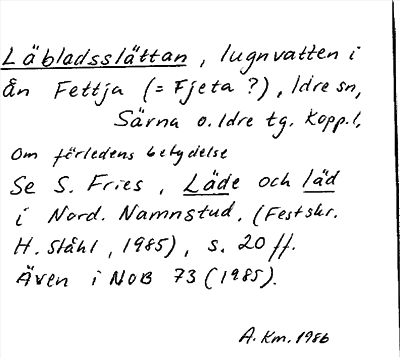 Läbladsslättan, lugnvatten i
ån Fettja (= Fjeta ?), Idre sn,
Särna o. Idre tg. Kopp. l.
Om förledens betydelse
Se S. Fries, Läde och läd
i Nord. Namnstud. (Festskr.
H. Ståhl, 1985), s. 20 ff.
Även i NOB 73 (1985).
A. Km. 1986